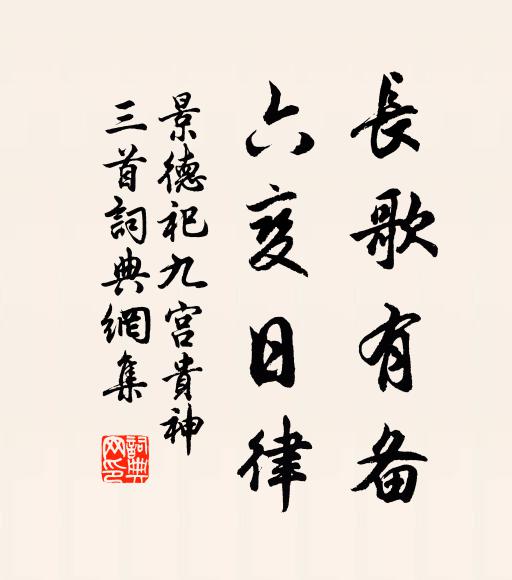 長歌有备
六变日律
景德祀九宮貴神
三首詞典網集
詞典网印